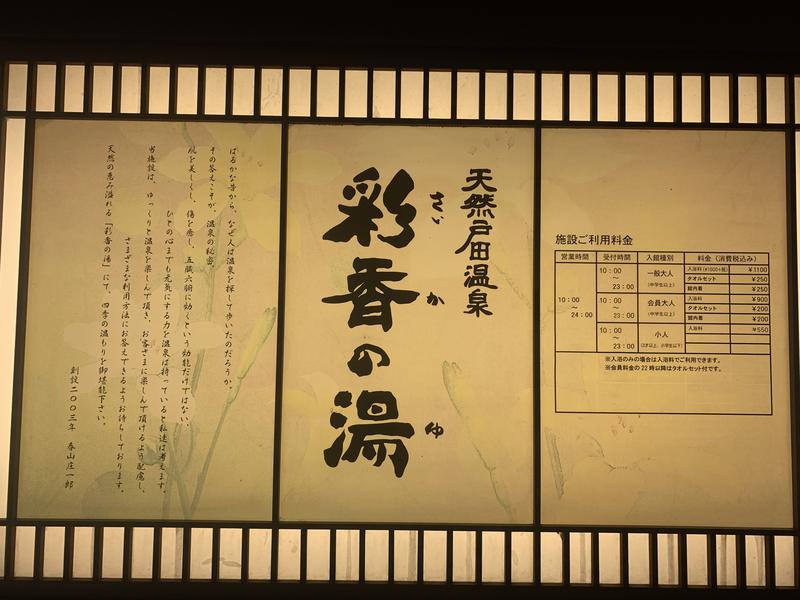 はるかな昔から、なぜ人は温泉を探して歩いたのだろうか。
その答えこそが、温泉の秘密。
肌を美しくし、傷を癒し、五臓六腑に効くという効能だけではない、
ひとの心までも元気にする力を温泉は持っていると私達は考えます。
当施設は、ゆっくりと温泉を楽しんで頂き、お客さまに楽しんで頂けるよう配慮し、
さまざまな利用方法にお答えできるようお待ちしております。
天然の恵み溢れる「彩香の湯」にて、四季の温もりを御堪能下さい。
創設二〇〇三年 春山庄一郎
天然戸田温泉
彩香の湯
さい か ゆ
施設ご利用料金
営業時間 受付時間 入館種別 料金(消費税込み)
10:00 〜 24:00
10:00 〜 23:00 一般大人 (中学生以上)
¥1100
タオルセット ¥250
館内着 ¥250
10:00 〜 23:00 会員大人 (中学生以上)
入浴料 ¥900
タオルセット ¥200
館内着 ¥200
10:00 〜 23:00 小人 (3才以上、小学生以下)
入浴料 ¥550
※入浴のみの場合は入浴料でご利用できます。
※会員料金の22時以降はタオルセット付です。